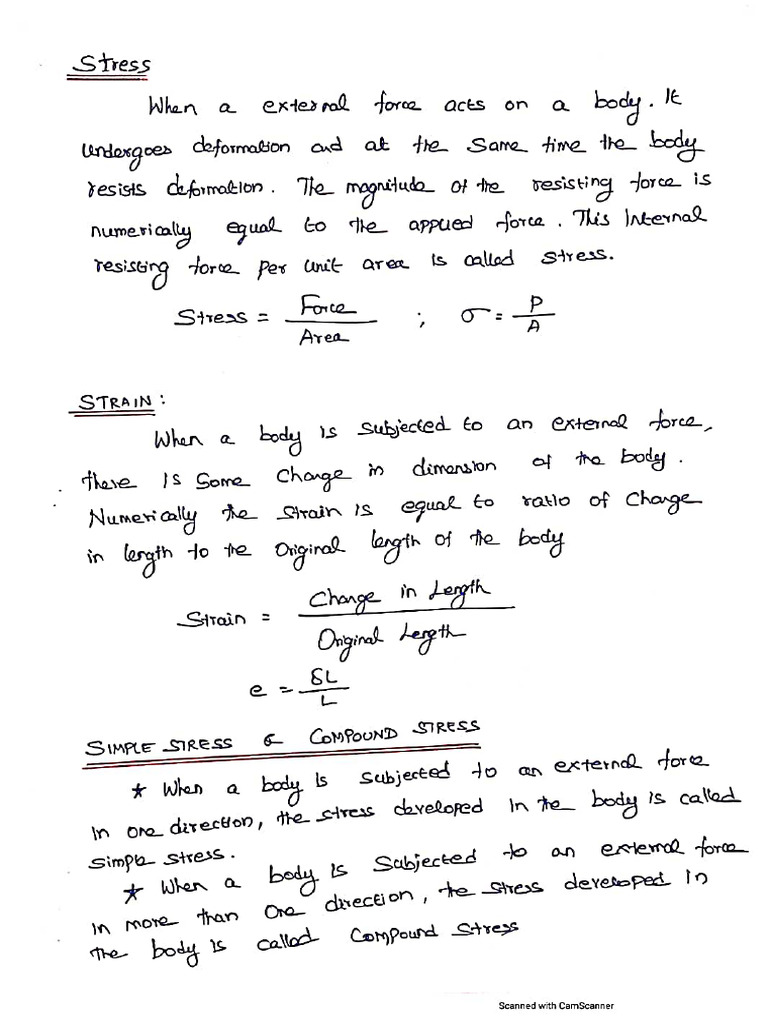 Stress
When a external force acts on a body. It
undergoes deformation and at the same time the body
resists deformation. The magnitude of the resisting force is
numerically equal to the applied force. This Internal
resisting force per unit area is called stress.
Stress = Force / Area ; σ = P / A
STRAIN:
When a body is subjected to an external force,
there is some change in dimension of the body.
Numerically the strain is equal to ratio of change
in length to the original length of the body
Strain = Change in Length / Original Length
e = δL / L
SIMPLE STRESS & COMPOUND STRESS
* When a body is subjected to an external force
in one direction, the stress developed in the body is called
simple stress.
* When a body is subjected to an external force
in more than one direction, the stress developed in
the body is called compound stress
Scanned with CamScanner